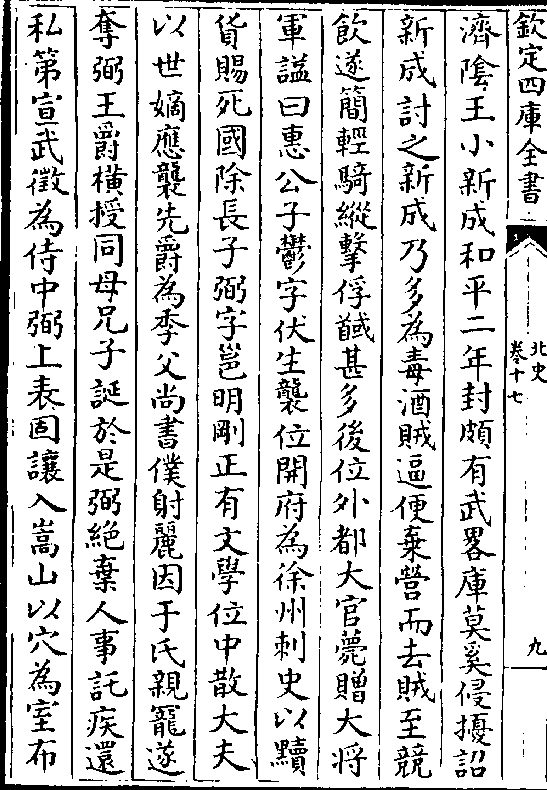 欽定四庫全書
北史
卷十七
九
濟隂王小新成和平二年封頗有武畧庫莫奚侵擾詔
新成討之新成乃多為毒酒賊逼便棄營而去賊至競
飲遂簡輕騎縱擊俘馘甚多後位外都大官薨贈大将
軍諡曰惠公子鬱字伏生襲位開府為徐州刺史以黷
貨賜死國除長子弼字邕明剛正有文學位中散大夫
以世嫡應襲先爵為季父尚書僕射麗因于氏親寵遂
奪弼王爵横授同母兄子誕於是弼絶棄人事託疾還
私第宣武徵為侍中弼上表固讓入嵩山以穴為室布